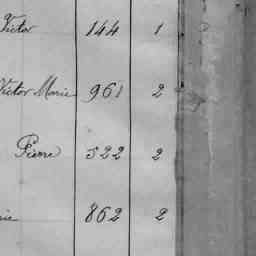 Victor 144 1
Victor Marie 961 2
Pierre 522 2
rie 862 2